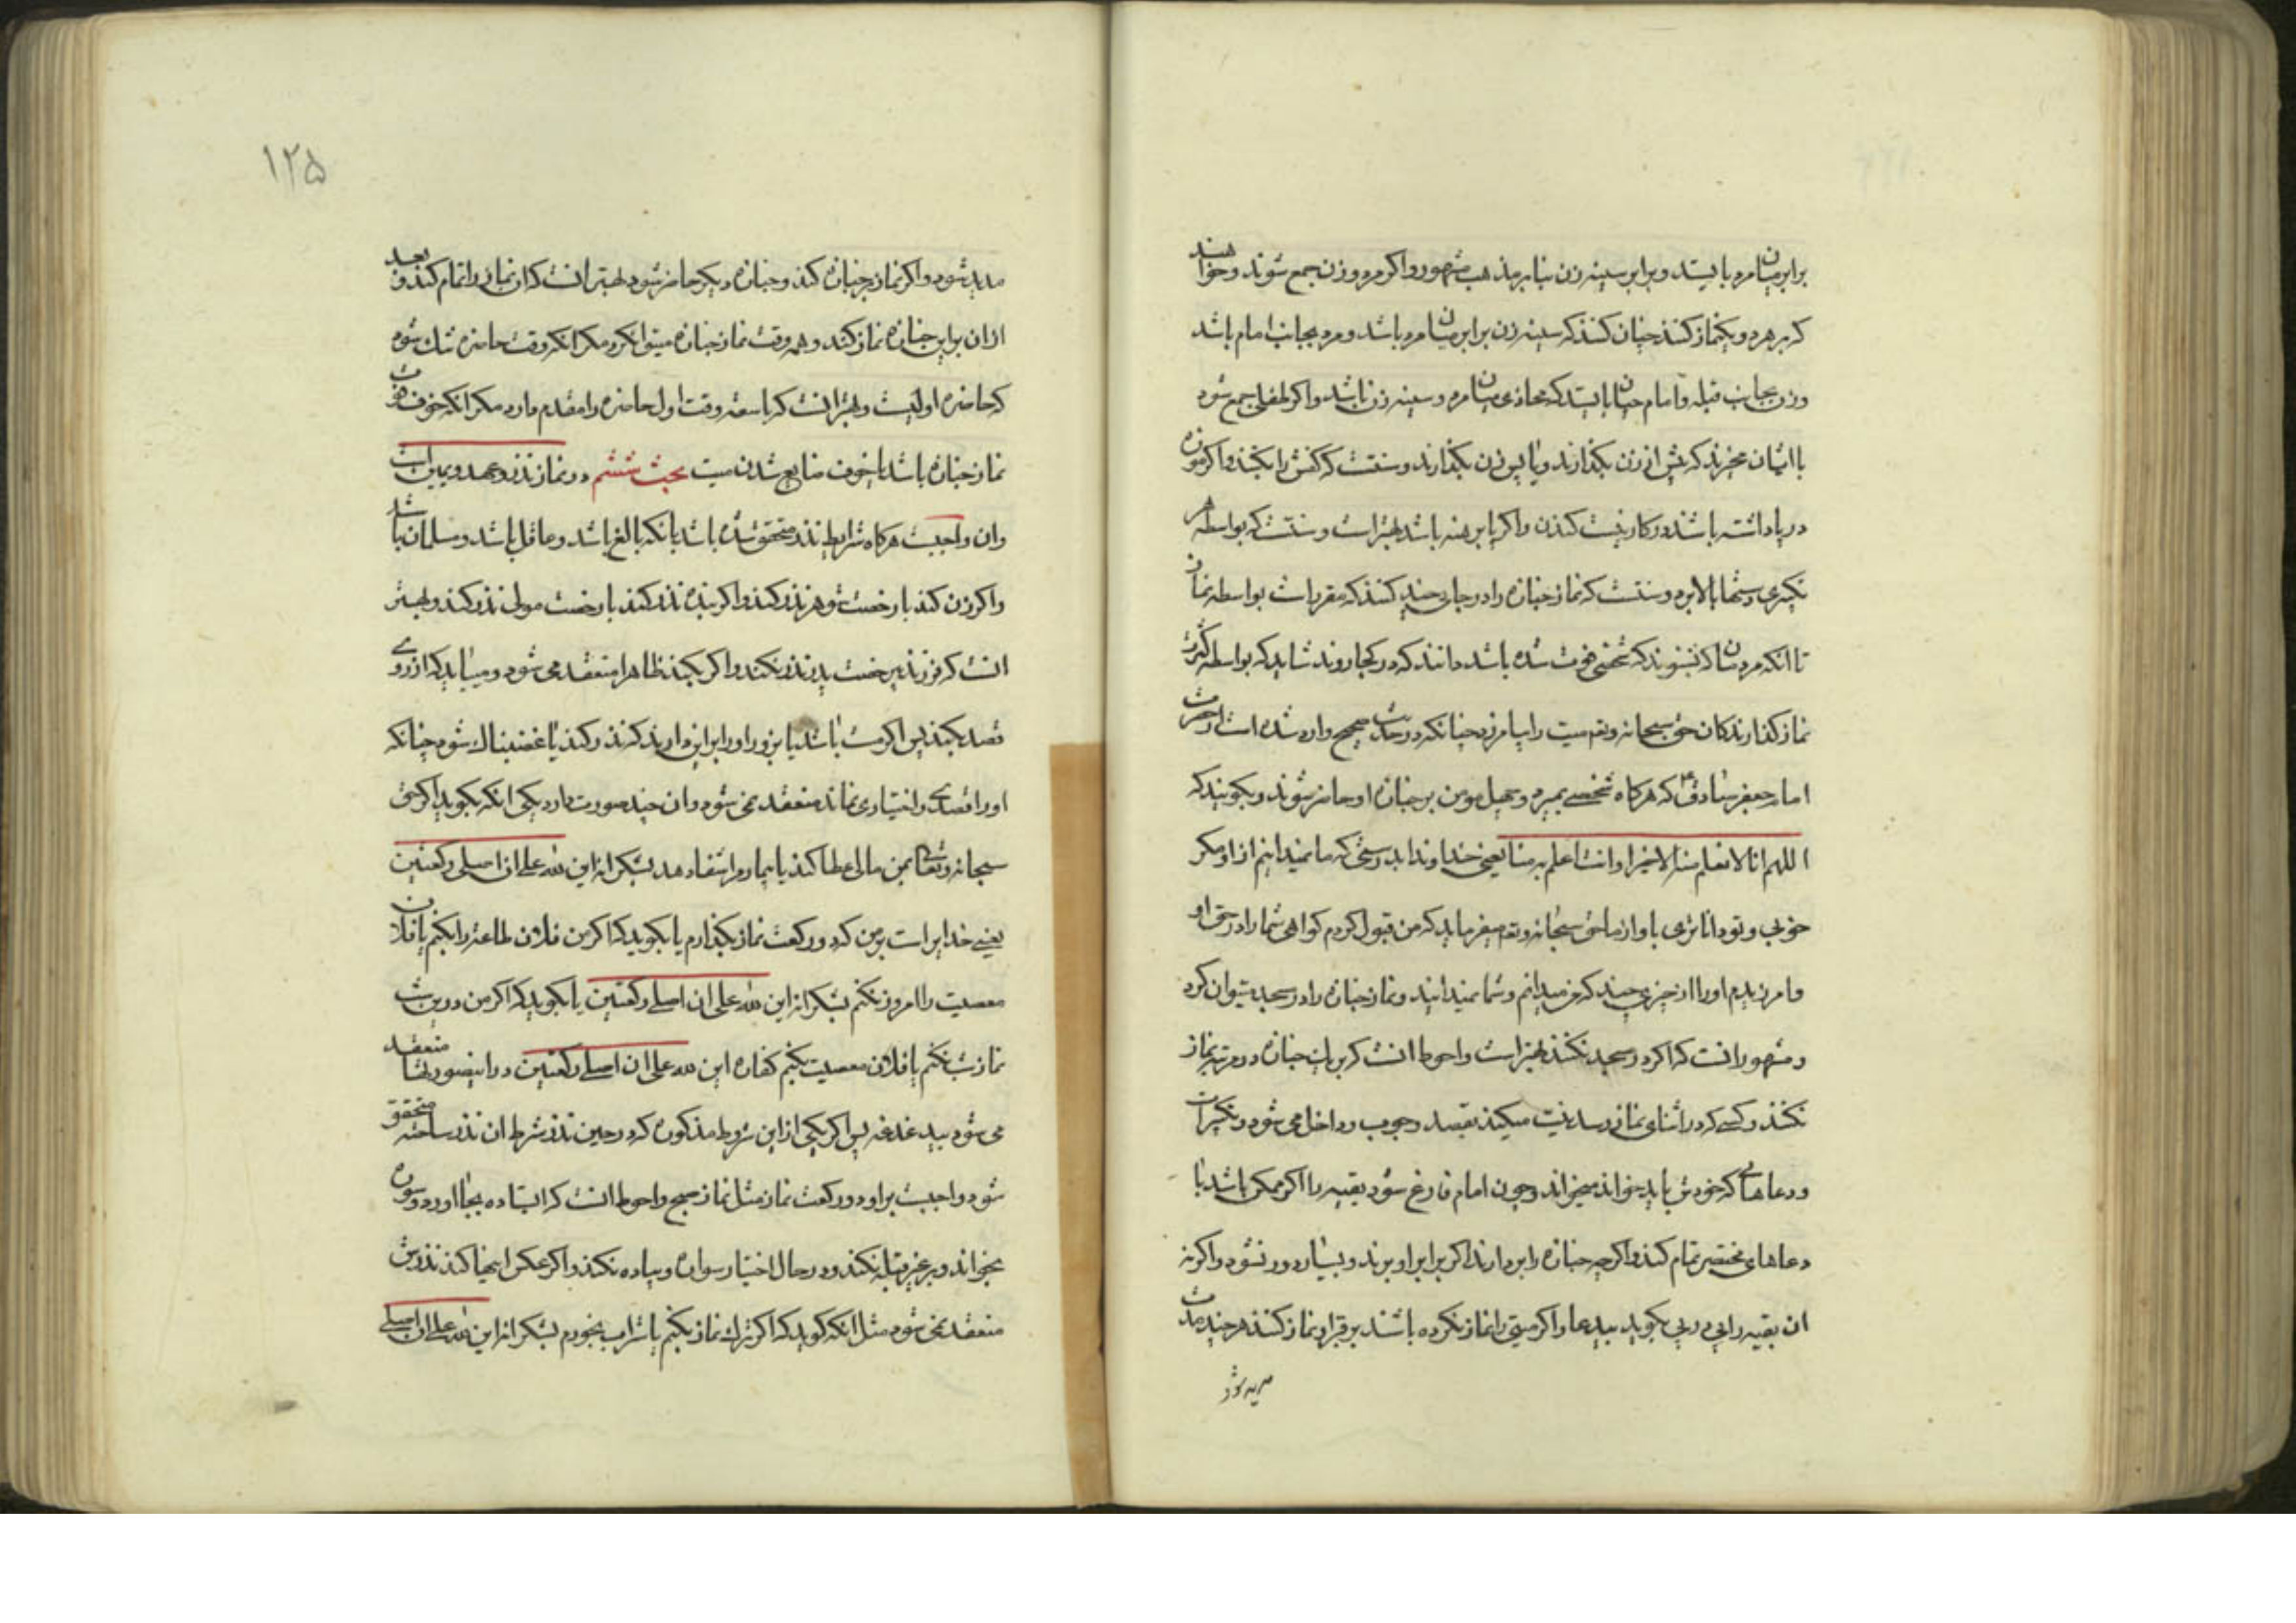 برابر میان مرد بایستد و برابر سینه زن بنابر مذهب مشهور و اگر مرد و زن جمع شوند و خواهند
که بر هر دو یکنماز کنند چنان کنند که سینه زن برابر میان مرد باشد و مرد بجانب امام باشد
و زن بجانب قبله و امام چنان بایستد که محاذی میان مرد و سینه زن باشد و اگر طفلی جمع شود
با ایشان مخیرند که پیش از زن بگذارند و یا پس زن بگذارند و سنتست که کفش را بکنند و اگر موزه
در پا داشته باشند در کار نیست کندن و اگر پا برهنه باشد بهتر است و سنتست که بواسطه هر
تکبیری دستها بالا برد و سنتست که نماز جنازه را در جایی چند کنند که مقرر است بواسطه نماز
تا انکه مردمان که بشنوند که شخصی فوت شده باشد دانند که در کجا روند شاید که بواسطه کثرت
نماز گذارندگان حق سبحانه وتع میت را بیامرزد چنانکه در حدیث صحیح وارد شده است از حضرت
امام جعفر صادق ع که هرگاه شخصی بمیرد و چهل مومن بر جنازه او حاضر شوند و بگویند که
اللهم انا لا نعلم منه الا خیرا و انت اعلم به منا یعنی خداوندا بدرستی که ما نمیدانیم از او مگر
خوبی و تو داناتری باو از ما حق سبحانه وتع میفرماید که من قبول کردم گواهی شما را در حق او
و امرزیدم او را از چیزی چند که من میدانم و شما نمیدانید و نماز جنازه را در مسجد میتوان کرد
و مشهور انست که اگر در مسجد نکنند بهتر است و احوط انست که بر یک جنازه دو مرتبه نماز
نکنند و کسی که در اثنای نماز رسد نیت میکند بقصد وجوب و داخل می شود و تکبیرات
و دعاهایی که خودش باید خواند میخواند و چون امام فارغ شود بقیه را اگر ممکن باشد با
دعاهای مختصر تمام کند و اگر چه جنازه را بردارند اگر برابر او برند و بسیار دور نشود و اگر نه
ان بقیه را پی در پی بگوید بیدعا و اگر میتی را نماز نکرده باشند بر قبر او نماز کنند هر چند مدت
مدید شود
۱۲۵
مدید شود و اگر نماز بر جنازه کند و جنازه دیگر حاضر شود بهتر انست که ان نماز را تمام کند و بعد
از ان براین جنازه نماز کند و همه وقت نماز جنازه میتوانکرد مگر انکه وقت حاضره تنک شود
که حاضره اولیست و بهتر انست که با سعه وقت اول حاضره را مقدم دارد مگر انکه خوف فوت
نماز جنازه باشد یا خوف ضایع شدن میت بحث ششم در نماز نذر و عهد و یمین است
و ان واجبست هرگاه شرایط نذر متحقق شده باشد بانکه بالغ باشد و عاقل باشد و مسلمان باشد
و اگر زن کند با رخصت شوهر نذر کند و اگر بنده نذر کند با رخصت مولی نذر کند و بهتر
انست که فرزند بیرخصت پدر نذر نکند و اگر بکند ظاهرا منعقد می شود و میباید که از روی
قصد بکند پس اگر مست باشد یا بزور او را بر این دارند که نذر کند یا غضبناک شود چنانکه
او را قصدی و اختیاری نماند منعقد نمی شود و ان چند صورت دارد یکی انکه بگوید اگر حق
سبحانه وتعالی بمن مالی عطا کند یا بیمارم را شفا دهد بشکرانه این لله علی ان اصلی رکعتین
یعنی خدایراست بر من که دو رکعت نماز بگذارم یا بگوید که اگر من فلان طاعت را بکنم یا فلان
معصیت را امروز نکنم بشکرانه این لله علی ان اصلی رکعتین یا بگوید که اگر من درین شب
نماز شب نکنم یا فلان معصیت بکنم کفاره این لله علی ان اصلی رکعتین در اینصورتها منعقد
می شود بیدغدغه پس اگر یکی از این شروط مذکوره که در حین نذر شرط ان نذر ساخته متحقق
شود واجبست بر او دو رکعت نماز مثل نماز صبح و احوط انست که ایستاده بجا اورد و سوره
بخواند و بر غیر قبله نکند و در حال اختیار سواره و پیاده نکند و اگر عکس اینها کند نذرش
منعقد نمی شود مثل انکه گوید که اگر ترک نماز بکنم یا شراب بخورم بشکرانه این لله علی ان اصلی